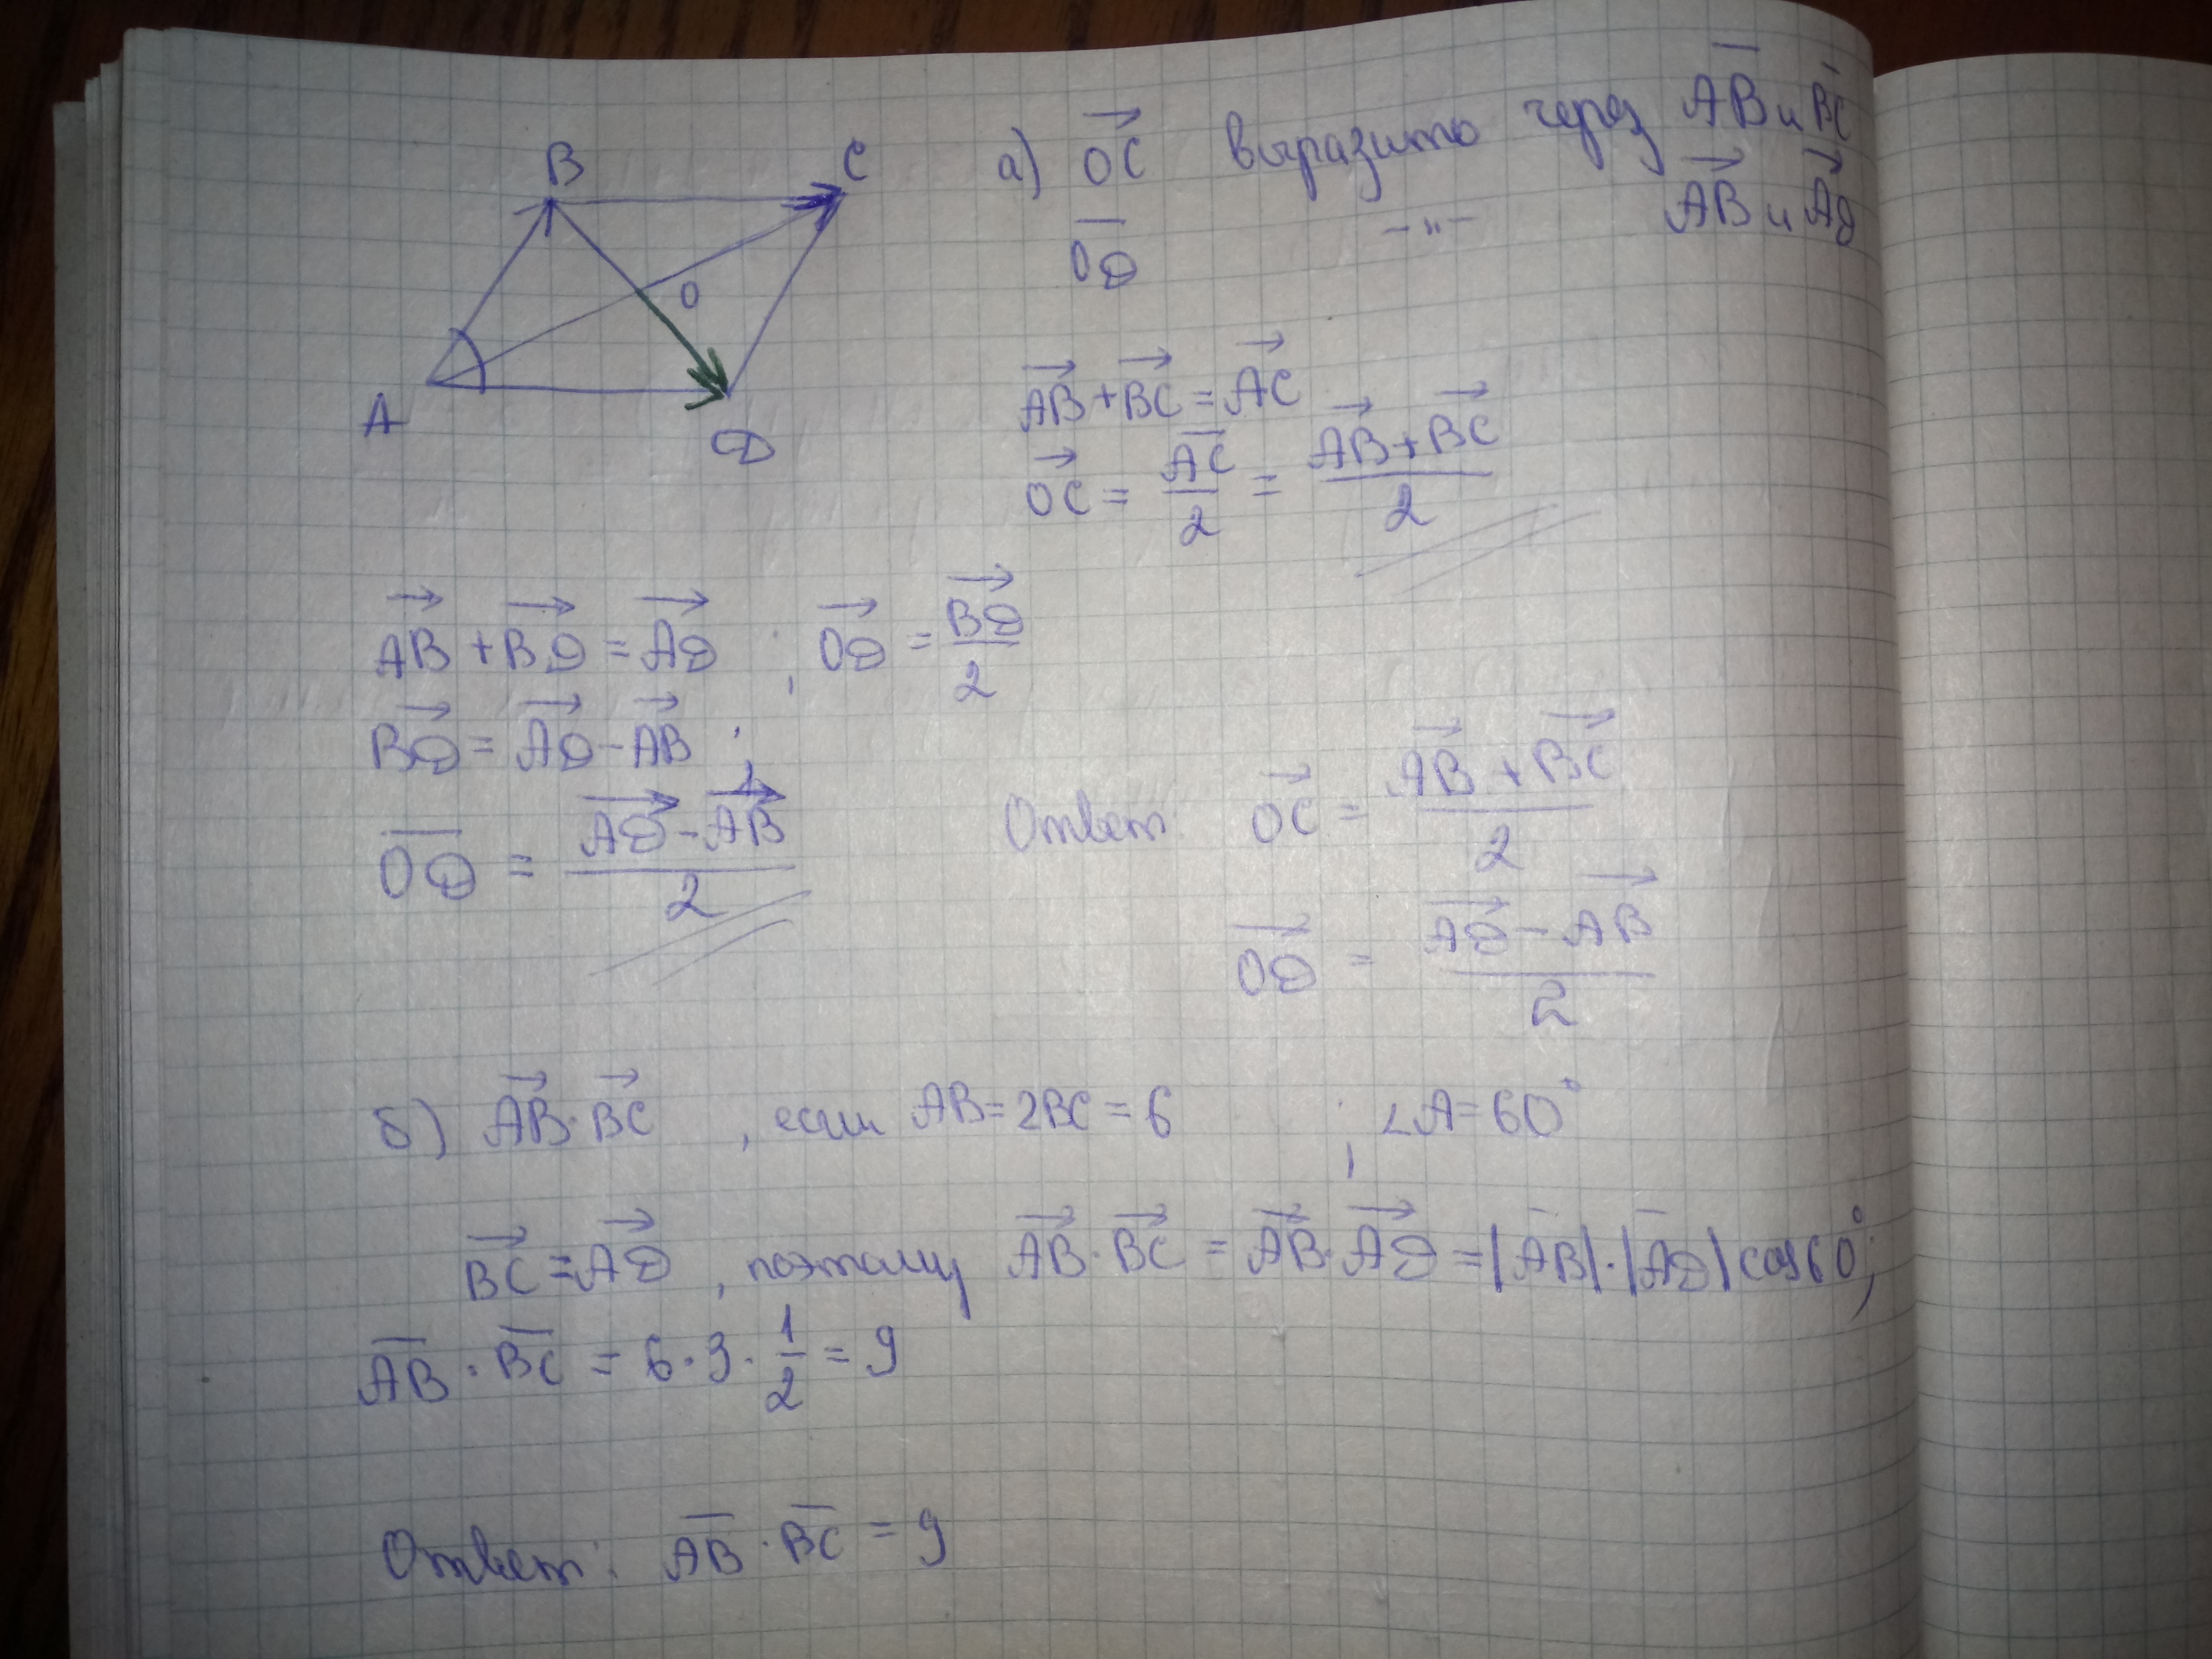 B C
O
A D
а) OC⃗ выразить через AB̅ и BC̅
OD̅ –"– AB⃗ и AD⃗
AB⃗ + BC⃗ = AC⃗
OC⃗ = AC̅/2 = (AB⃗ + BC⃗)/2
AB⃗ + BD⃗ = AD⃗ , OD⃗ = BD⃗/2
BD⃗ = AD⃗ - AB⃗ ;
OD̅ = (AD⃗ - AB⃗)/2
Ответ OC⃗ = (AB⃗ + BC⃗)/2
OD⃗ = (AD⃗ - AB⃗)/2
б) AB⃗ · BC⃗ , если AB = 2BC = 6 ; ∠A = 60°
BC⃗ = AD⃗ , поэтому AB⃗ · BC⃗ = AB⃗ · AD⃗ = |AB̅| · |AD̅| cos60°;
AB̅ · BC̅ = 6 · 3 · 1/2 = 9
Ответ: AB̅ · BC̅ = 9